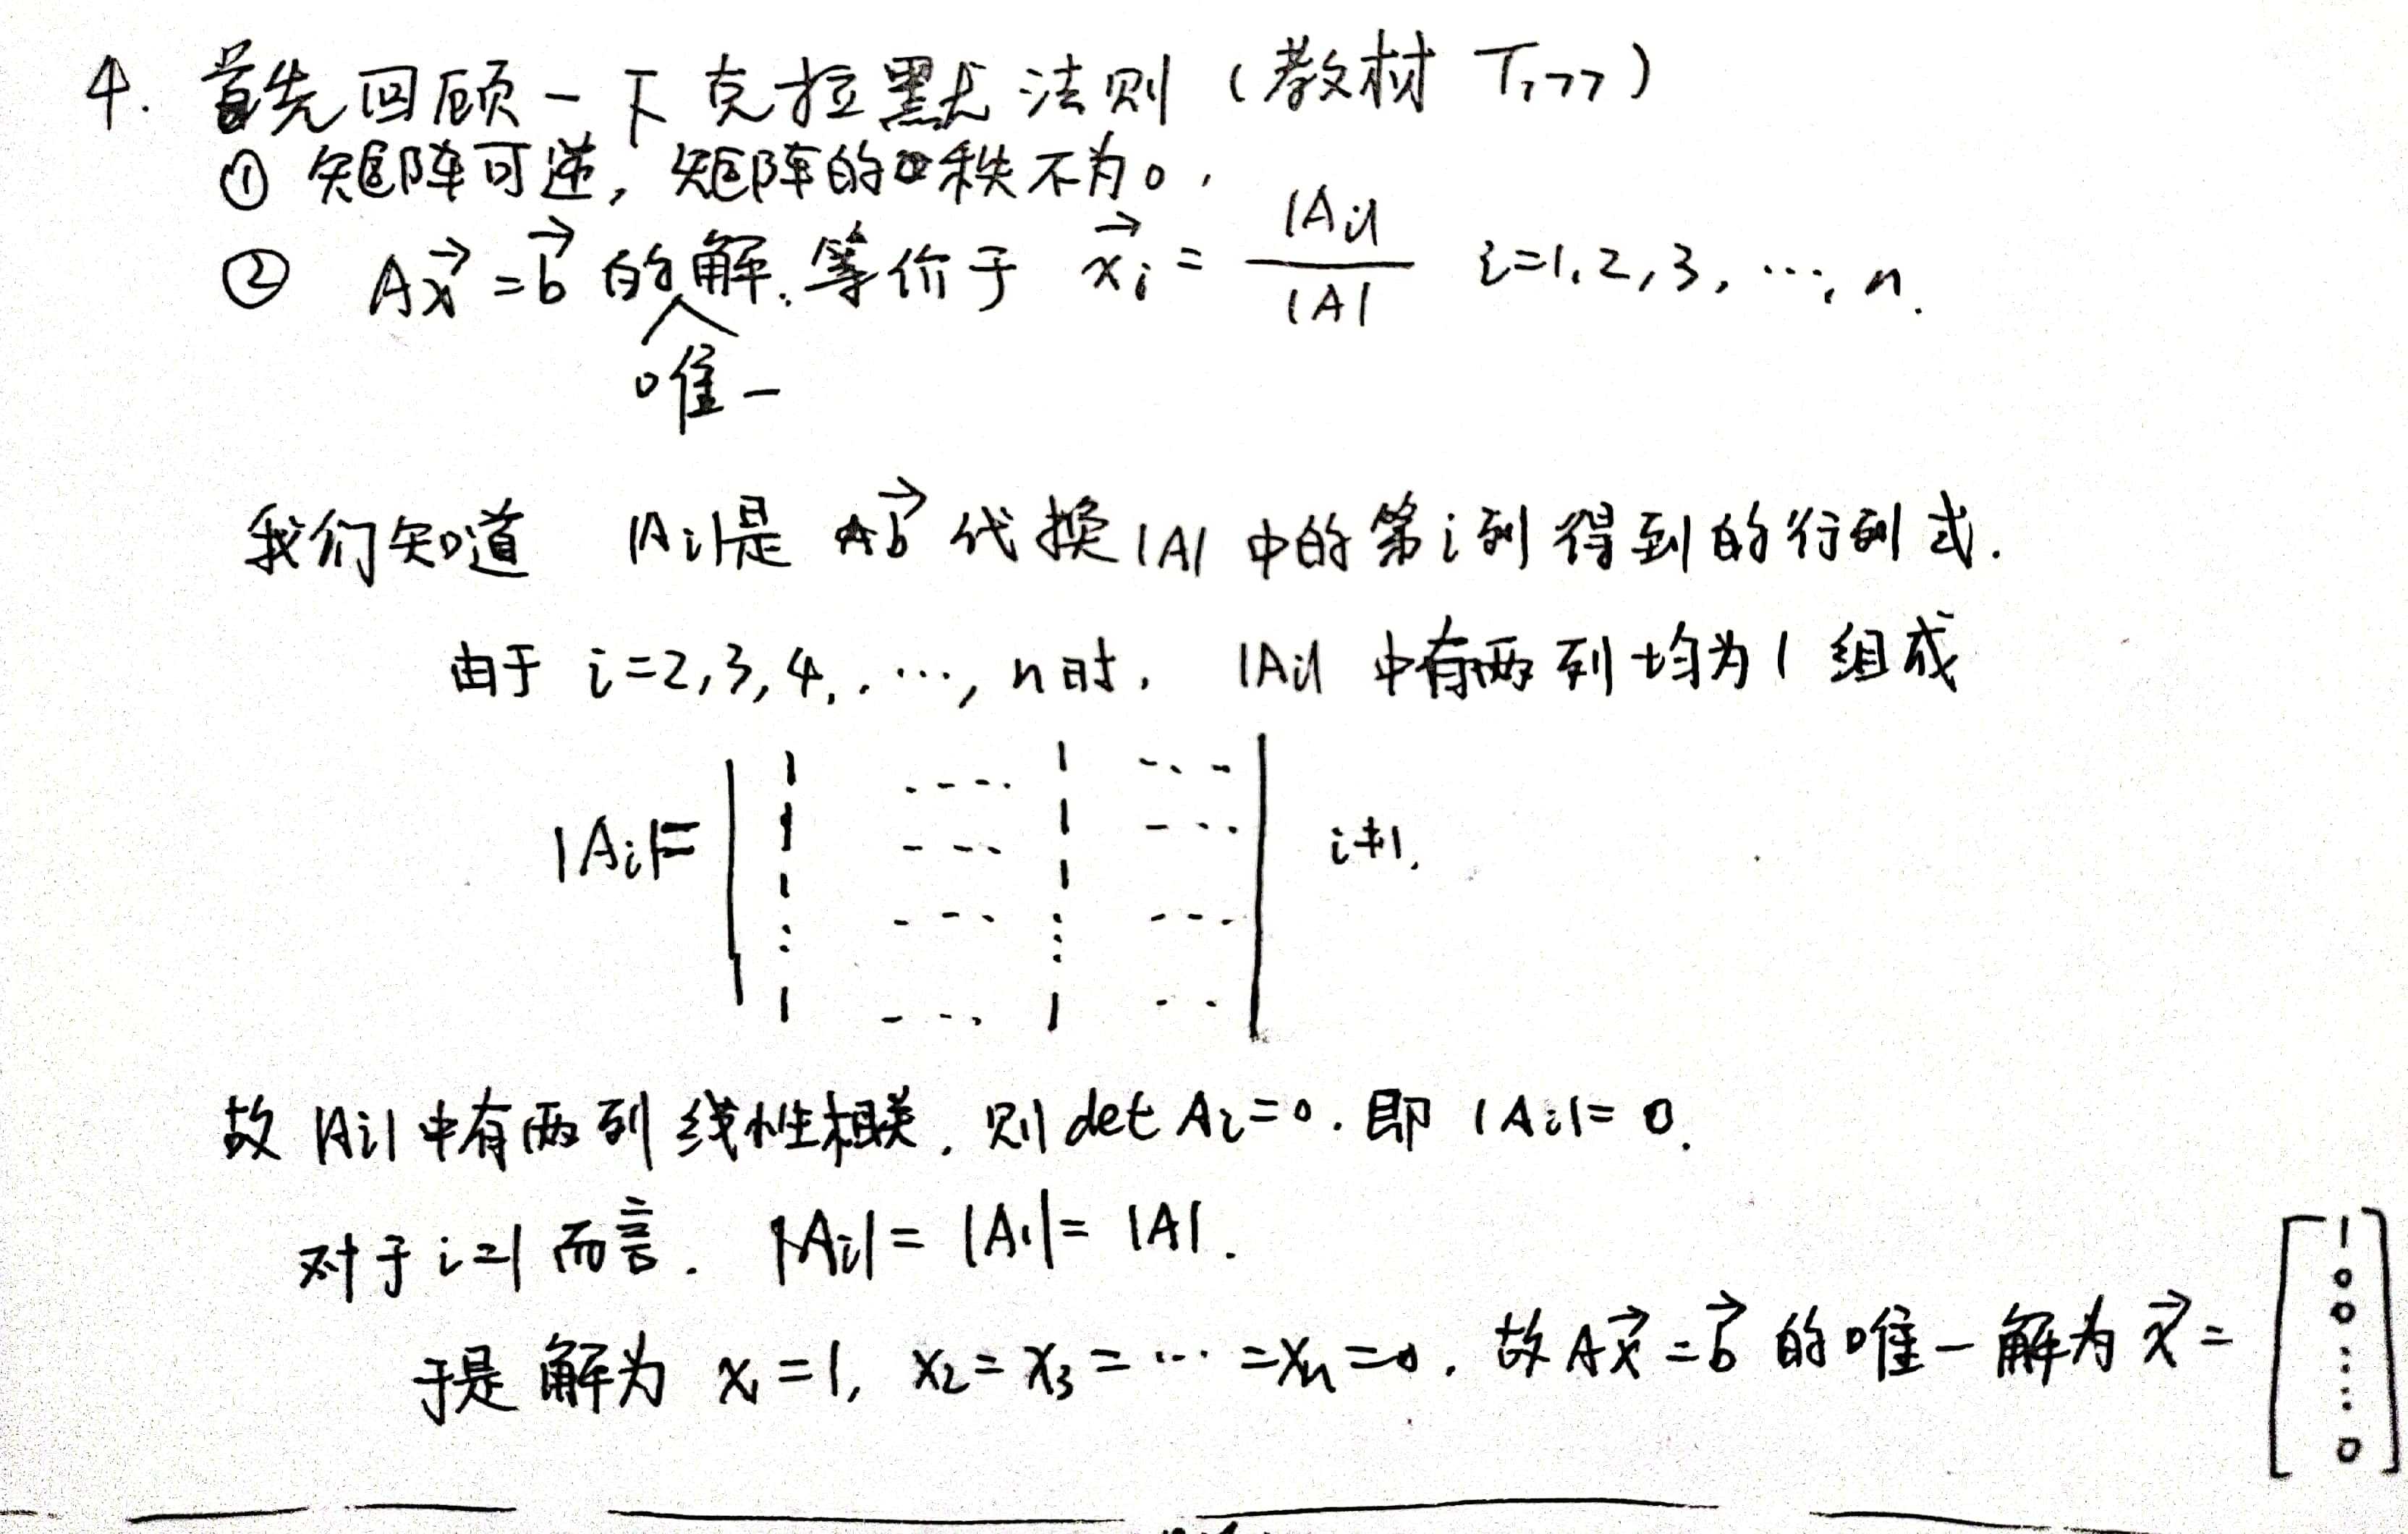 4. 首先回顾一下克拉默法则（教材 T177）
① 矩阵可逆，矩阵的秩不为0，
② Ax⃗ = b⃗ 的解. 等价于 x⃗ᵢ = |Aᵢ| / |A| i=1,2,3,…, n.
唯一
我们知道 |Aᵢ|是 b⃗ 代换|A| 中的第i列得到的行列式.
由于 i=2,3,4,…, n时， |Aᵢ| 中有两列均为1组成
|Aᵢ|= | 1 ---- 1 --- |
1 --- 1 ---
1 --- 1 ---
⋮ ⋮
1 --- 1 -- i≠1.
故 |Aᵢ| 中有两列线性相关. 则 det Aᵢ=0. 即 |Aᵢ|= 0.
对于 i=1 而言. |Aᵢ|= |A₁|= |A|.
于是 解为 x₁=1, x₂=x₃=…=xₙ=0. 故Ax⃗=b⃗ 的唯一解为 x⃗= [1 0 0 ⋮ 0]